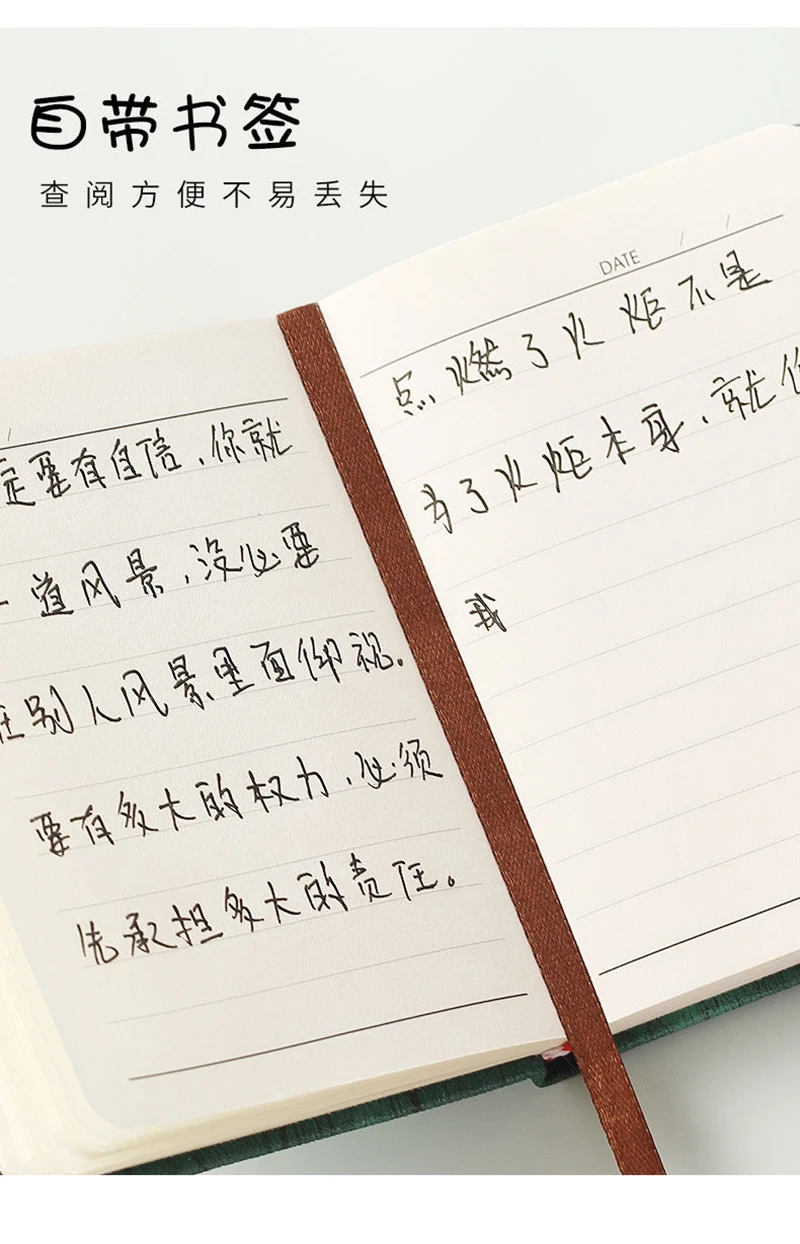 自带书签
查阅方便不易丢失
定要有自信,你就
一道风景,没必要
在别人风景里面仰视。
要有多大的权力,必须
先承担多大的责任。
DATE / /
点燃了火炬不是
为了火炬本身,就像
我